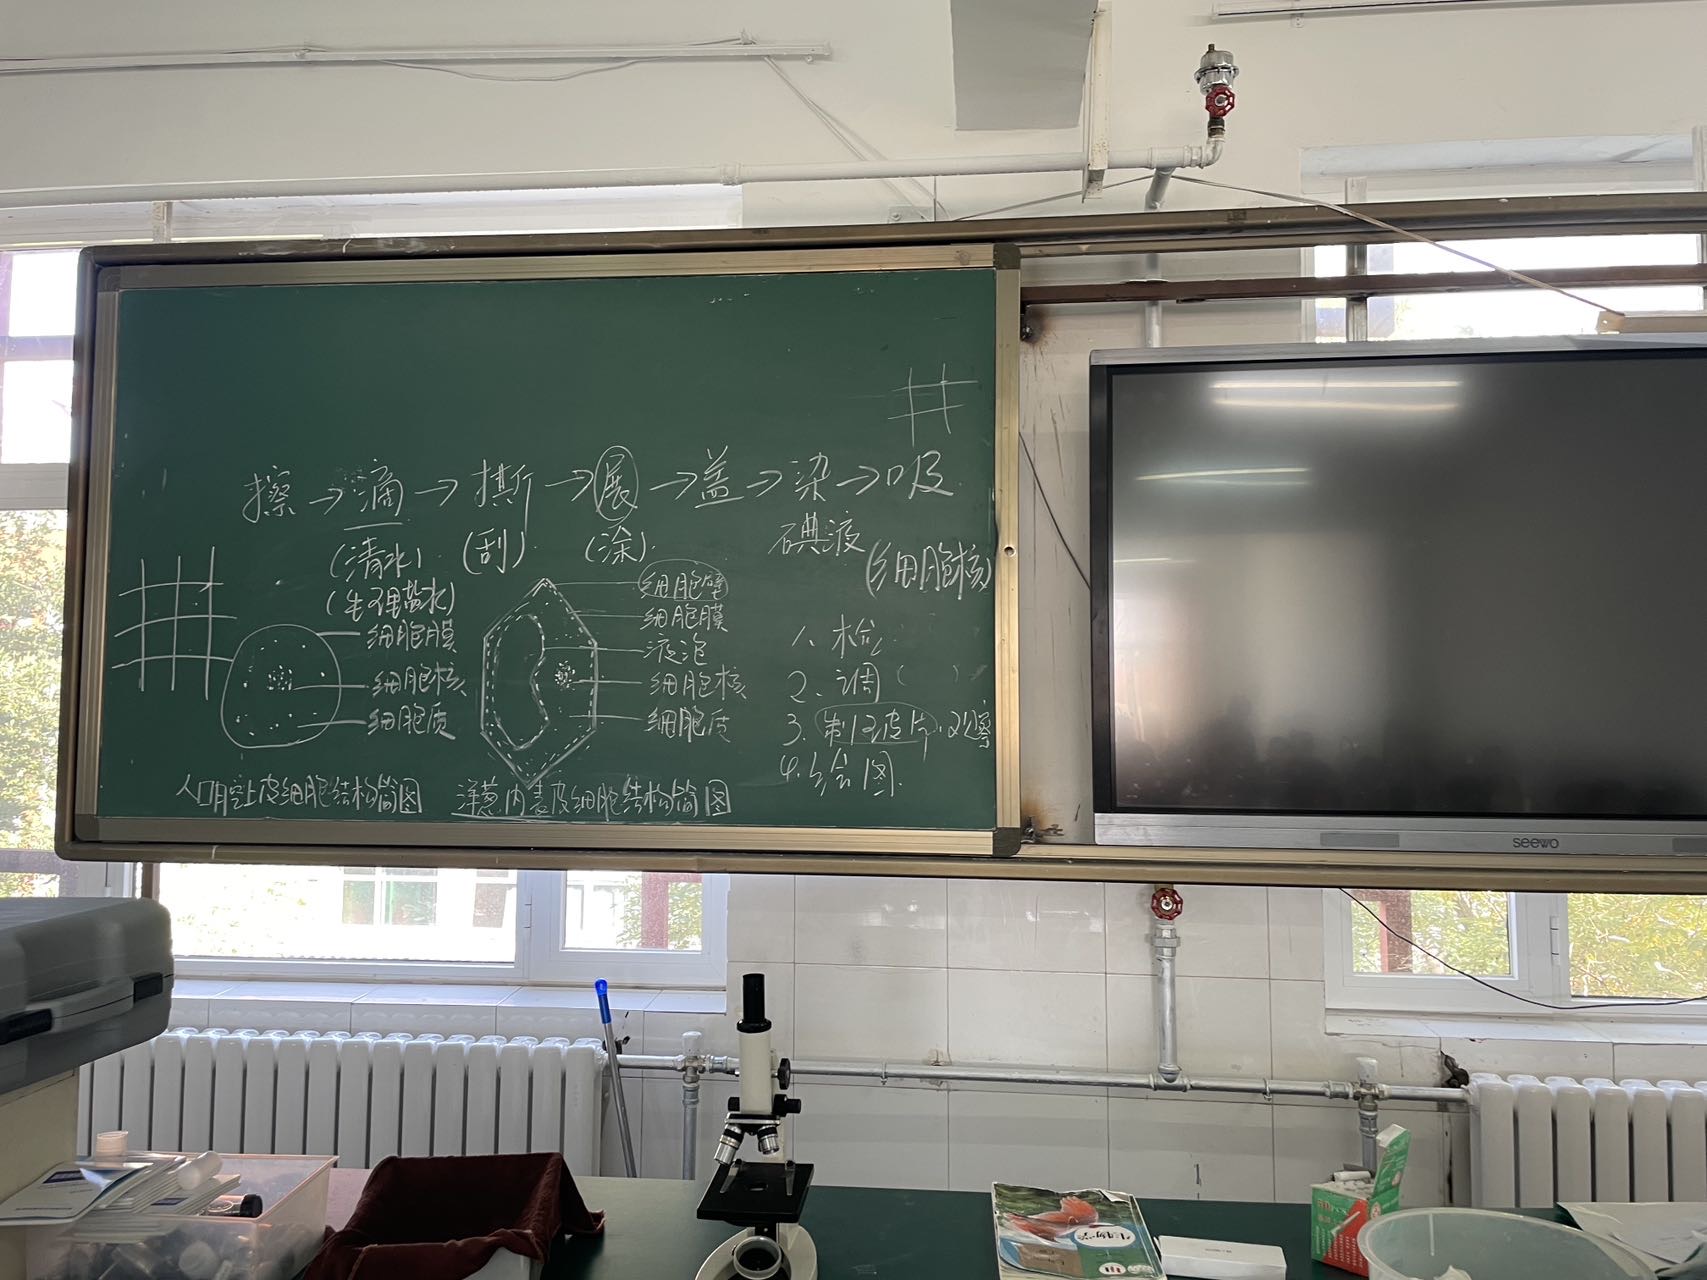 擦→滴→撕→展→盖→染→吸
(清水) (刮) (涂) 碘液 (细胞核)
(生理盐水)
细胞膜
细胞核
细胞质
人口腔上皮细胞结构简图
细胞壁
细胞膜
液泡
细胞核
细胞质
洋葱内表皮细胞结构简图
1、检
2、调( )
3、制、观察
4、绘图.
seewo
生物学